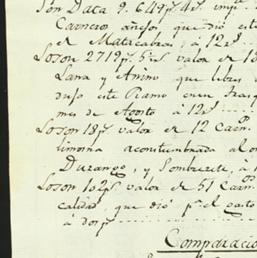 Son Data 9. 649 p.s 4 r.s imp.
Carneros añejos que dió este
el Matacabras à 12 r.s
Lo son 2719 p.s 5 r.s valor de
Lana y Añino que libres
dujo este Ramo en
mes de Agosto à 12 r.s
Lo son 18 p.s valor de 12 Carn.s
limosna acostumbrada al
Durango, y Sombrerete, à
Lo son 102 p.s valor de 51 Carn.os
calidad que dió p.a el gasto
à dos p.s
Comparacio